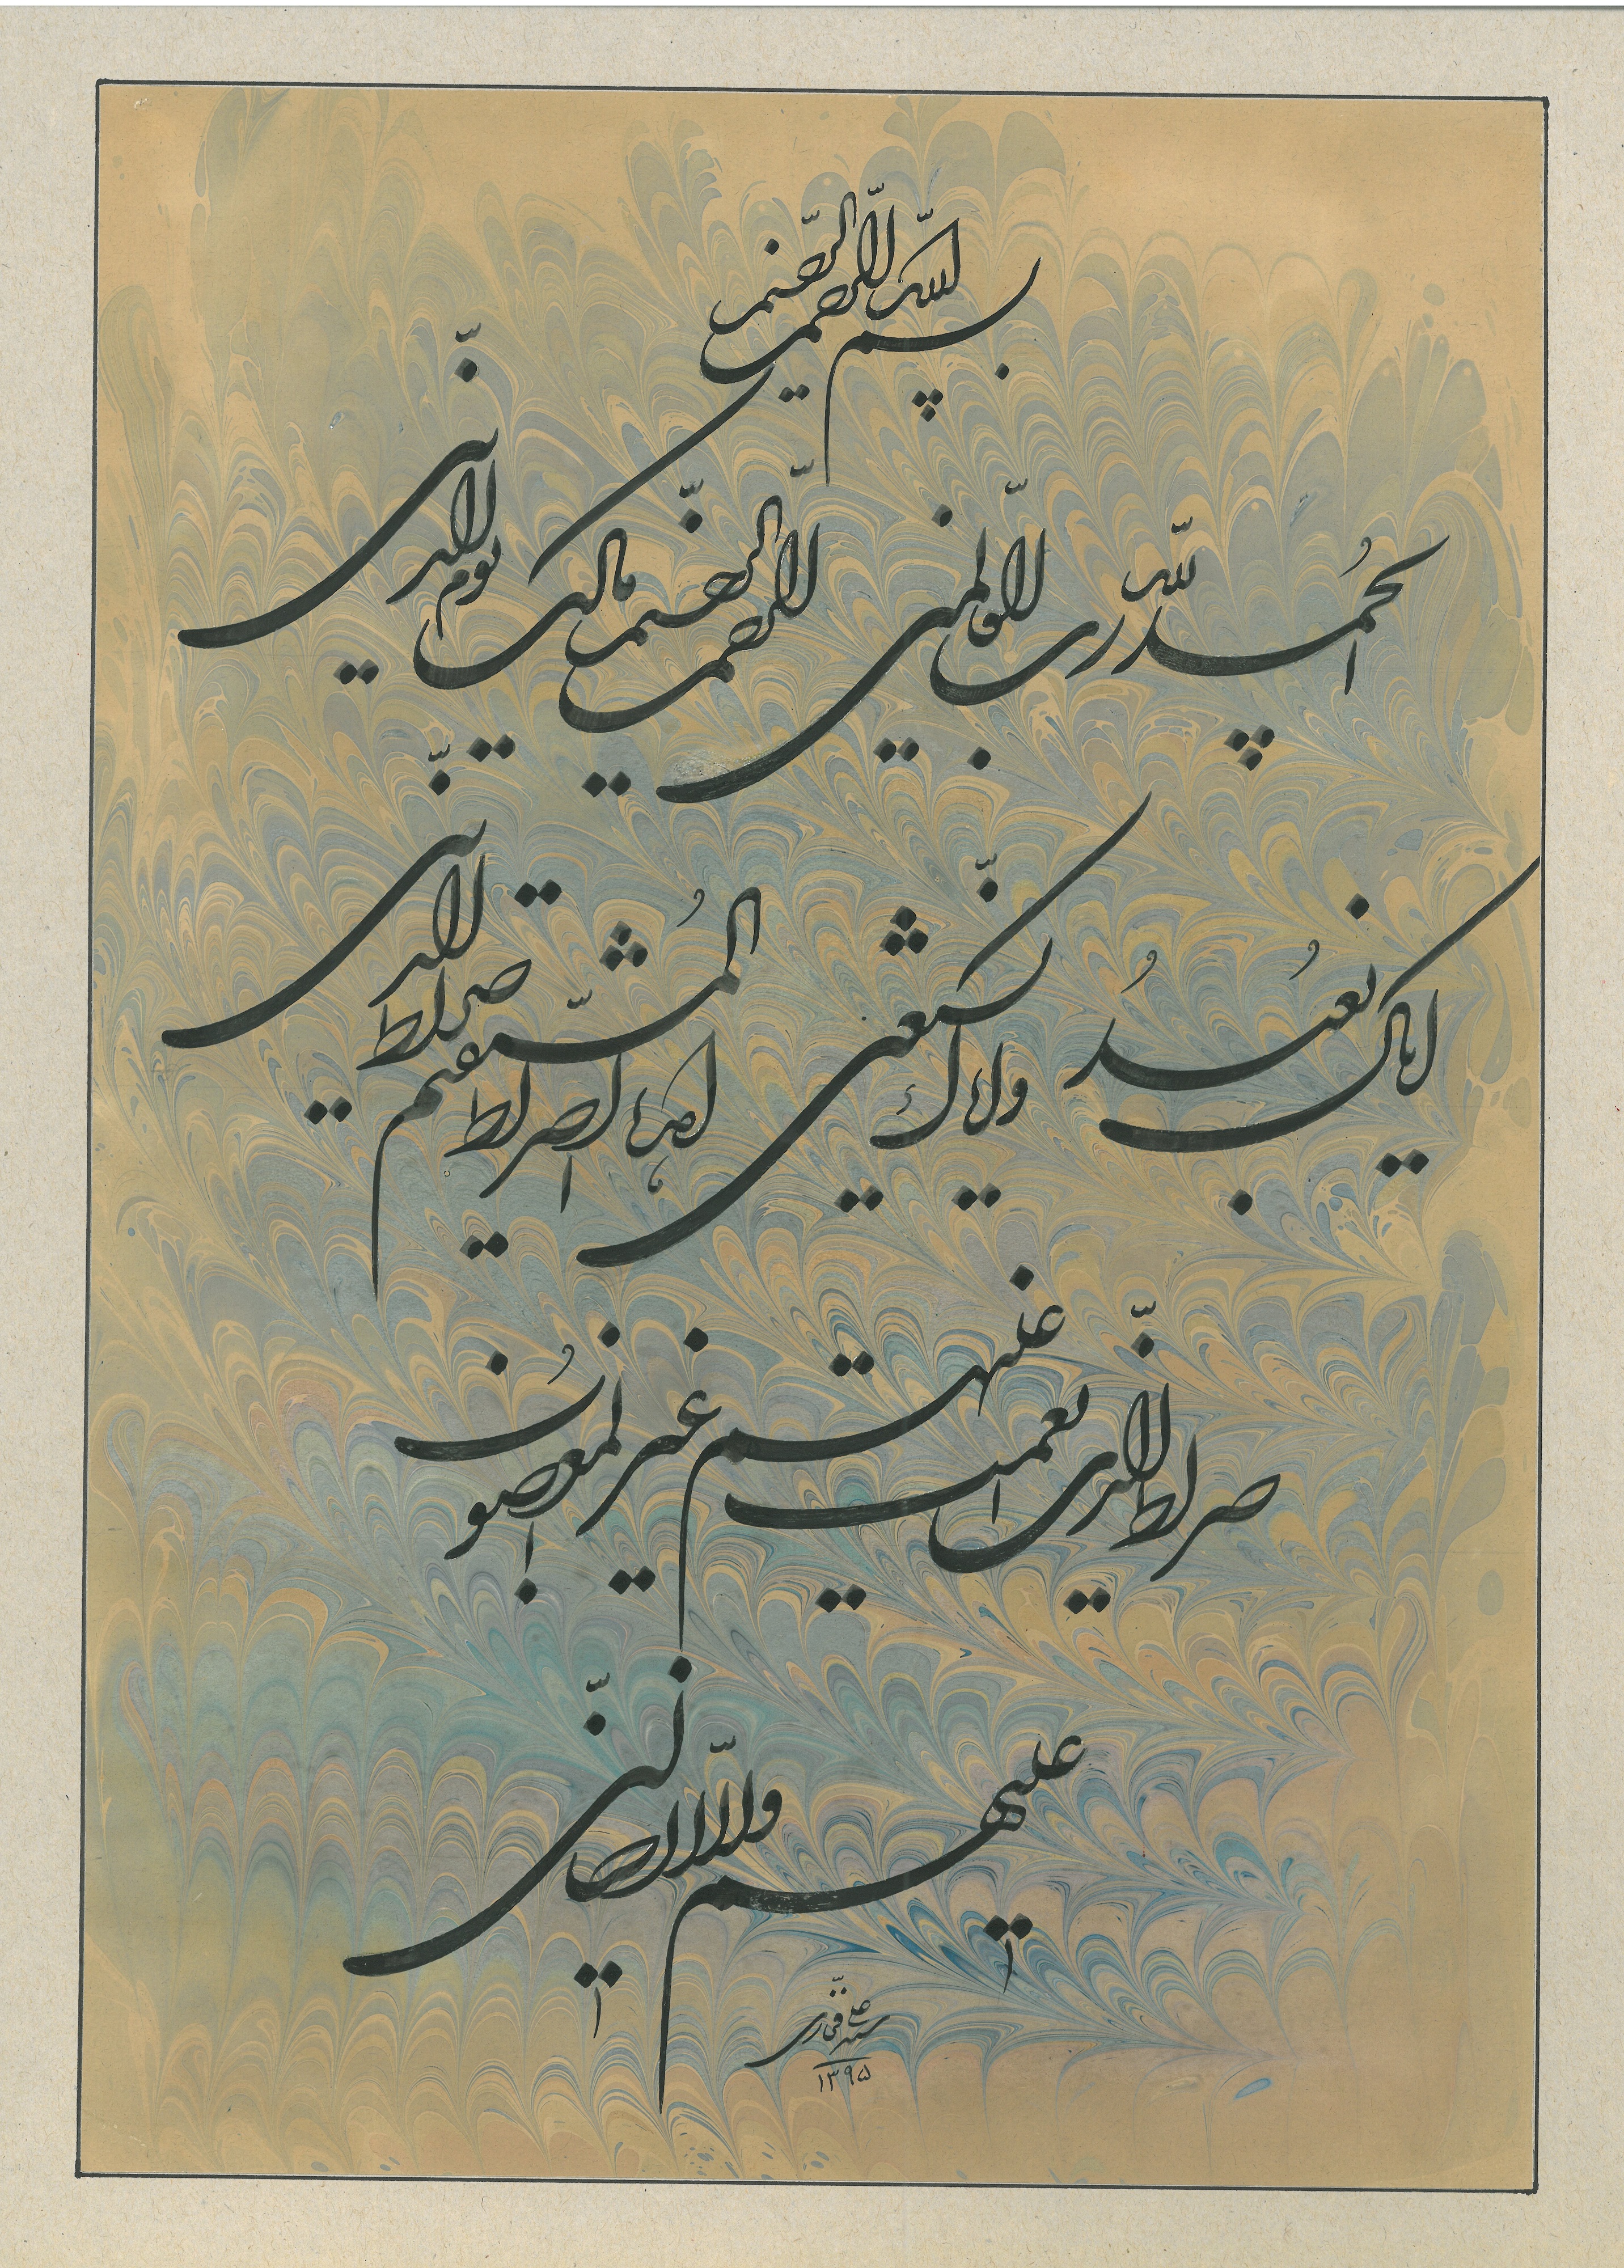 بسم الله الرحمن الرحیم
الحمدُ لله رب العالمین الرحمن الرحیم مالک یوم الدین
ایاک نعبُدُ و ایاک نستعین اهدنا الصراط المُستقیم صراط الذین
صراط الذین انعمت علیهم غیر المغضوب
علیهم و لا الضالین
سید علی
۱۳۹۵